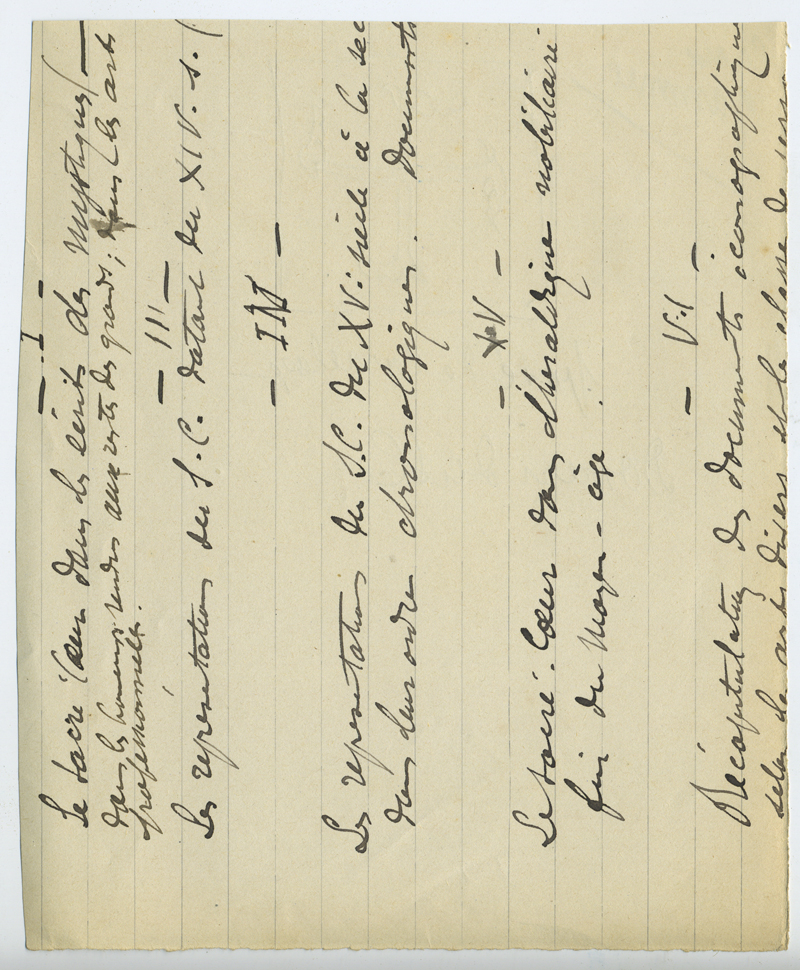 — I —
Le Sacré Cœur dans les écrits des Mystiques /
dans les hommages rendus aux restes des grands ; dans les arts
professionnels.
— III —
Les représentations du S.C. datant du XIV. s. (
— IV —
Les représentations du S.C. du XVe siècle à la sec
dans leur ordre chronologique. Documents
— V —
Le Sacré-Cœur dans l'héraldique nobiliaire
fin du Moyen-âge.
— VI —
Récapitulation des documents iconographiqu
selon les arts divers et la classe de